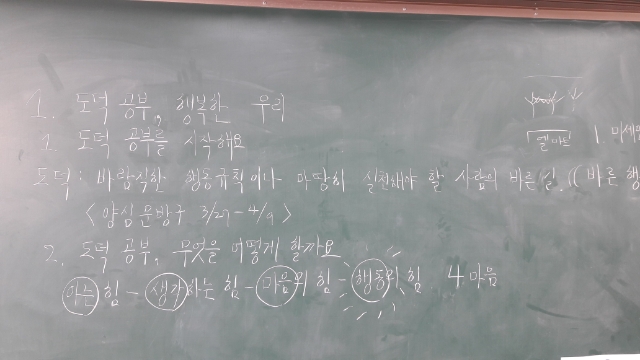 1. 도덕 공부, 행복한 우리
1. 도덕 공부를 시작해요
도덕: 바람직한 행동규칙이나 마땅히 실천해야 할 사람의 바른 길. ((바른 행
<양심문방구 3/27-4/9>
2. 도덕 공부, 무엇을 어떻게 할까요
아는 힘 - 생각하는 힘 - 마음의 힘 - 행동의 힘 4마음
1 미세먼